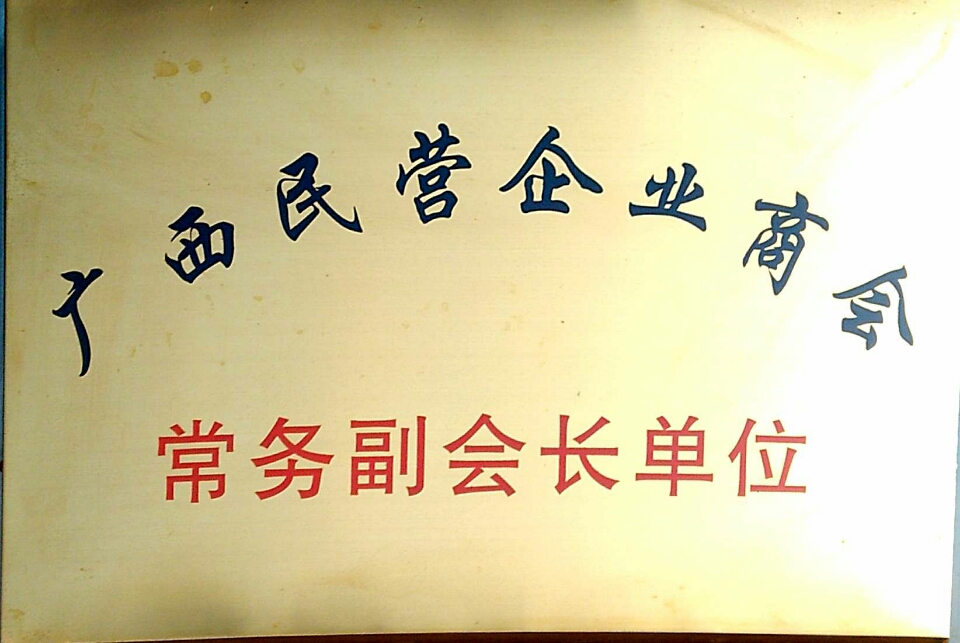 广西民营企业商会
常务副会长单位